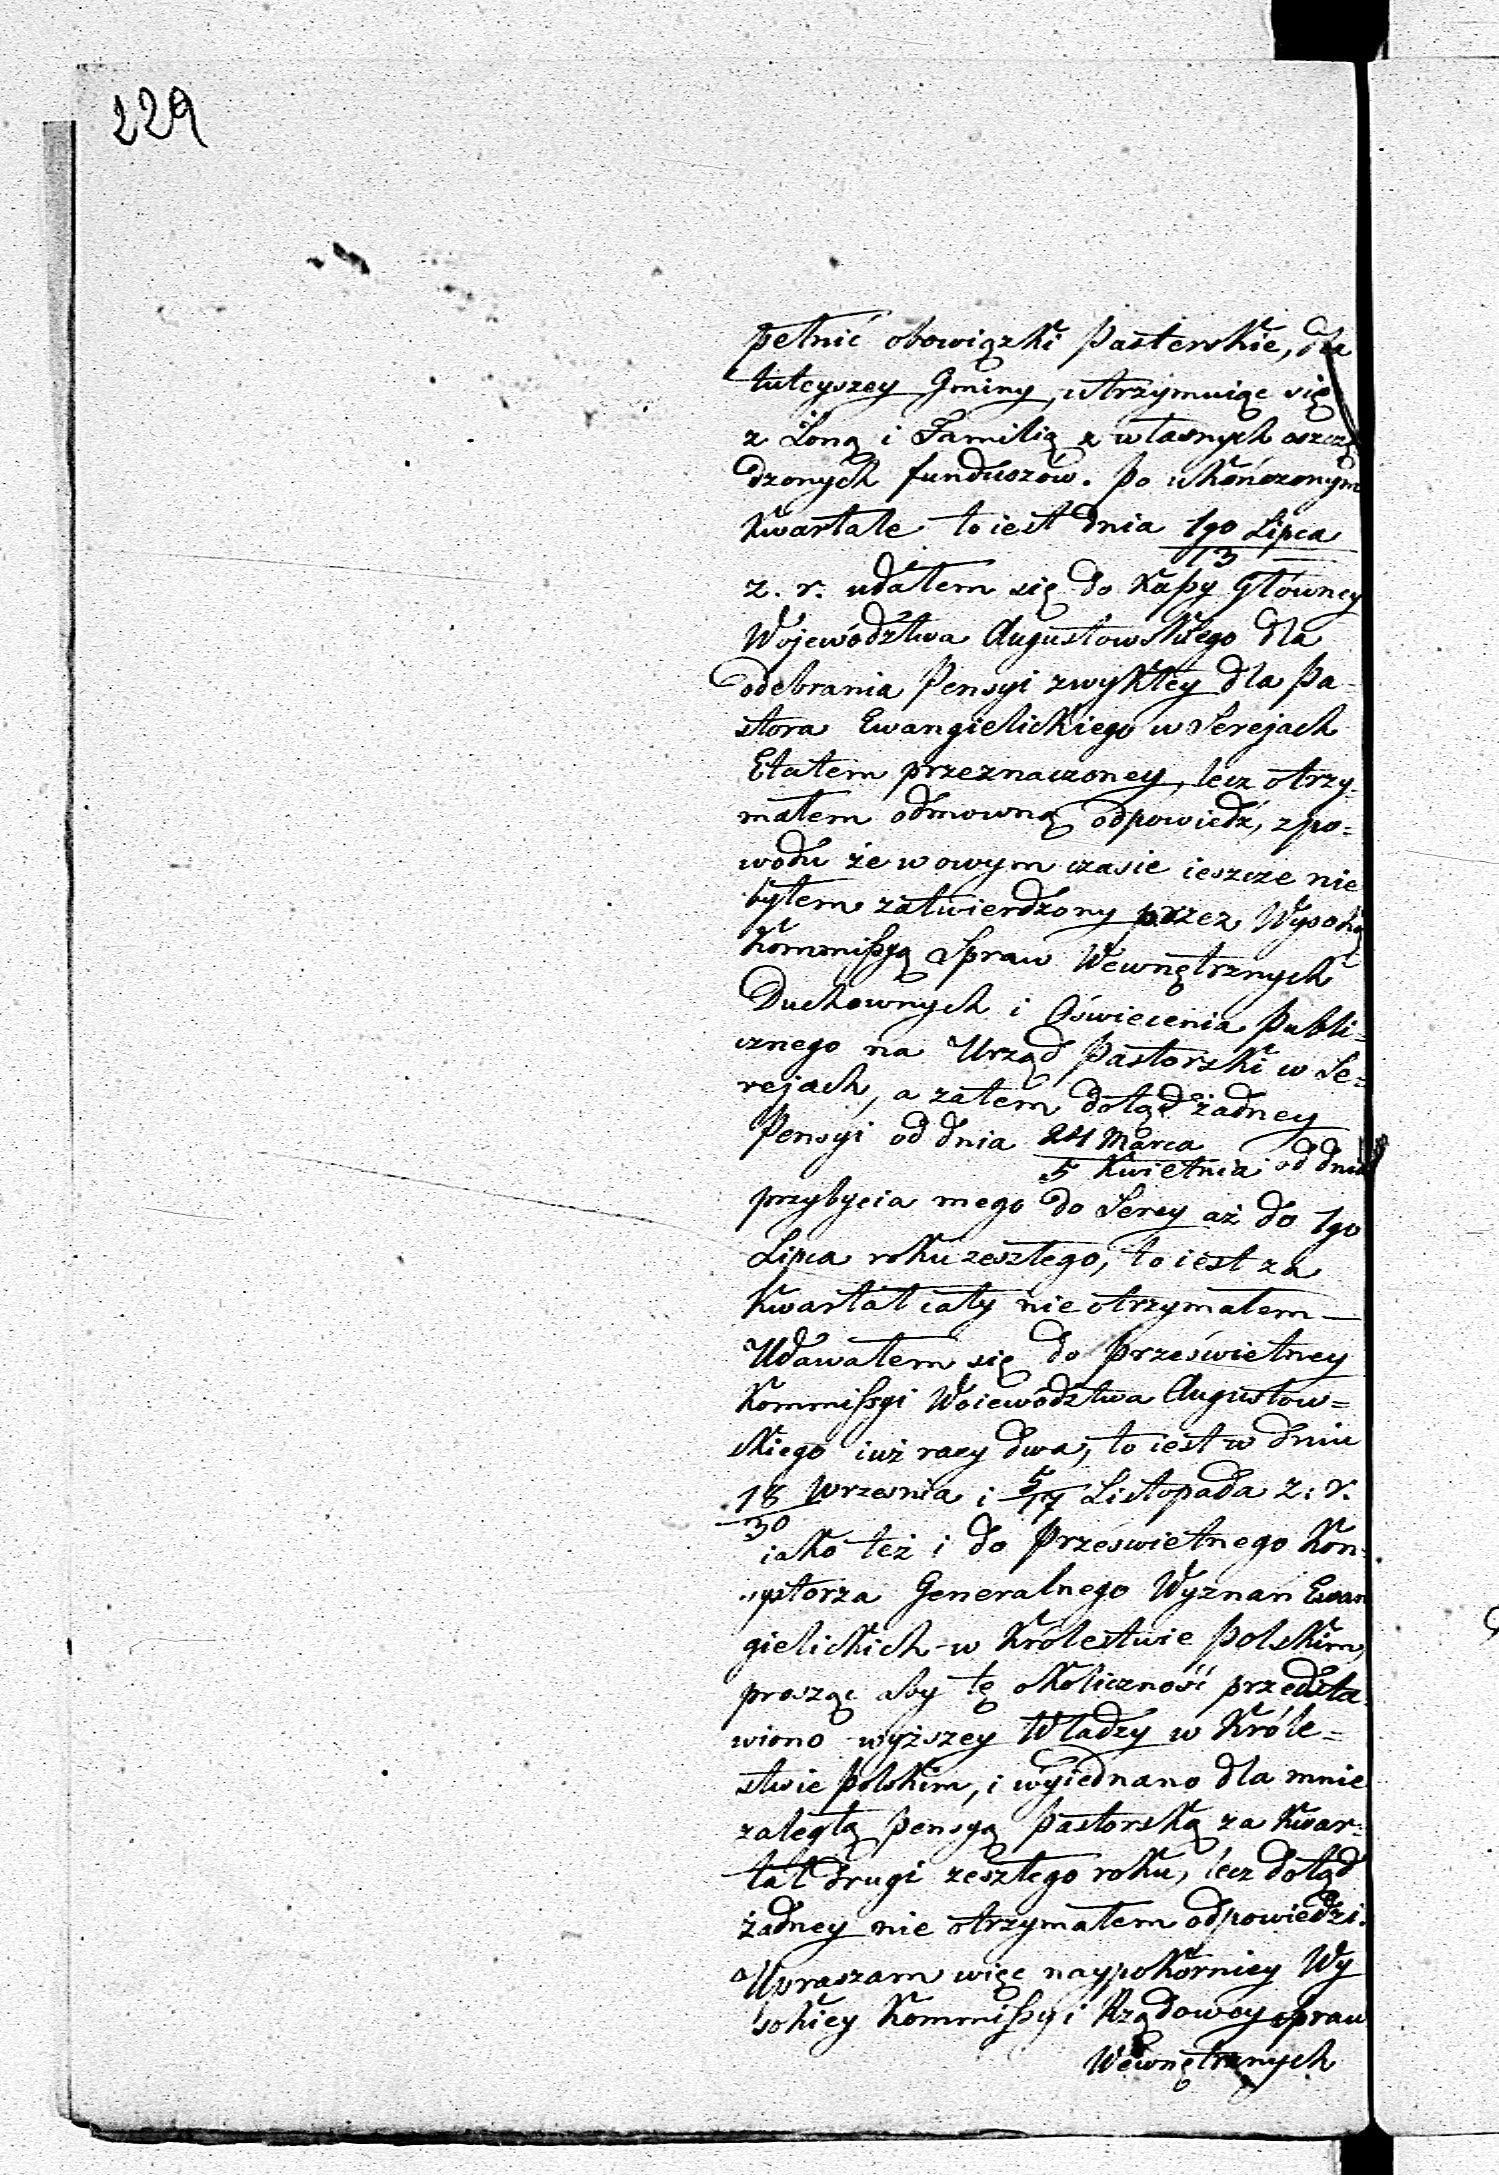 229
pełnić obowiązki Pasterskie, dla
tuteyszey Gminy, utrzymuiąc się
z Żoną i Familią z własnych oszczę
dzonych funduszów. Po ukończonym
Kwartale to iest dnia 1go Lipca
13
z. r. udałem się do Kaßy Główney
Województwa Augustowskiego dla
odebrania Pensyi zwykłey dla Pa-
stora Ewangielickiego w Serejach
Etatem przeznaczoney, lecz otrzy-
małem odmowną odpowiedź, z po=
wodu że w owym czasie ieszcze nie
byłem zatwierdzony przez Wysoką
Kommißyą Spraw Wewnętrznych
Duchownych i Oświecenia Publi=
cznego na Urząd Pastorski w Se=
rejach, a zatem dotąd żadney
Pensyi od dnia 24 Marca
5 Kwietnia od dnia
przybycia mego do Serey aż do 1go
Lipca roku zeszłego, to iest za
Kwartał cały nie otrzymałem —
Udawałem się do Prześwietney
Kommißyi Woiewództwa Augustow=
skiego iuż razy dwa, to iest w dniu
18 Września i 5/17 Listopada z. r.
30
iako też i do Prześwietnego Kon-
systorza Generalnego Wyznań Ewan
gielickich w Królestwie Polskim,
prosząc aby tę okoliczność przedsta-
wiono wyższey Władzy w Króle=
stwie Polskim, i wyiednano dla mnie
zaległą Pensyą Pastorską za Kwar-
tał drugi zeszłego roku, lecz dotąd
żadney nie otrzymałem odpowiedzi.
Upraszam więc naypokorniey Wy
sokiey Kommißyi Rządowey Spraw
Wewnętrznych